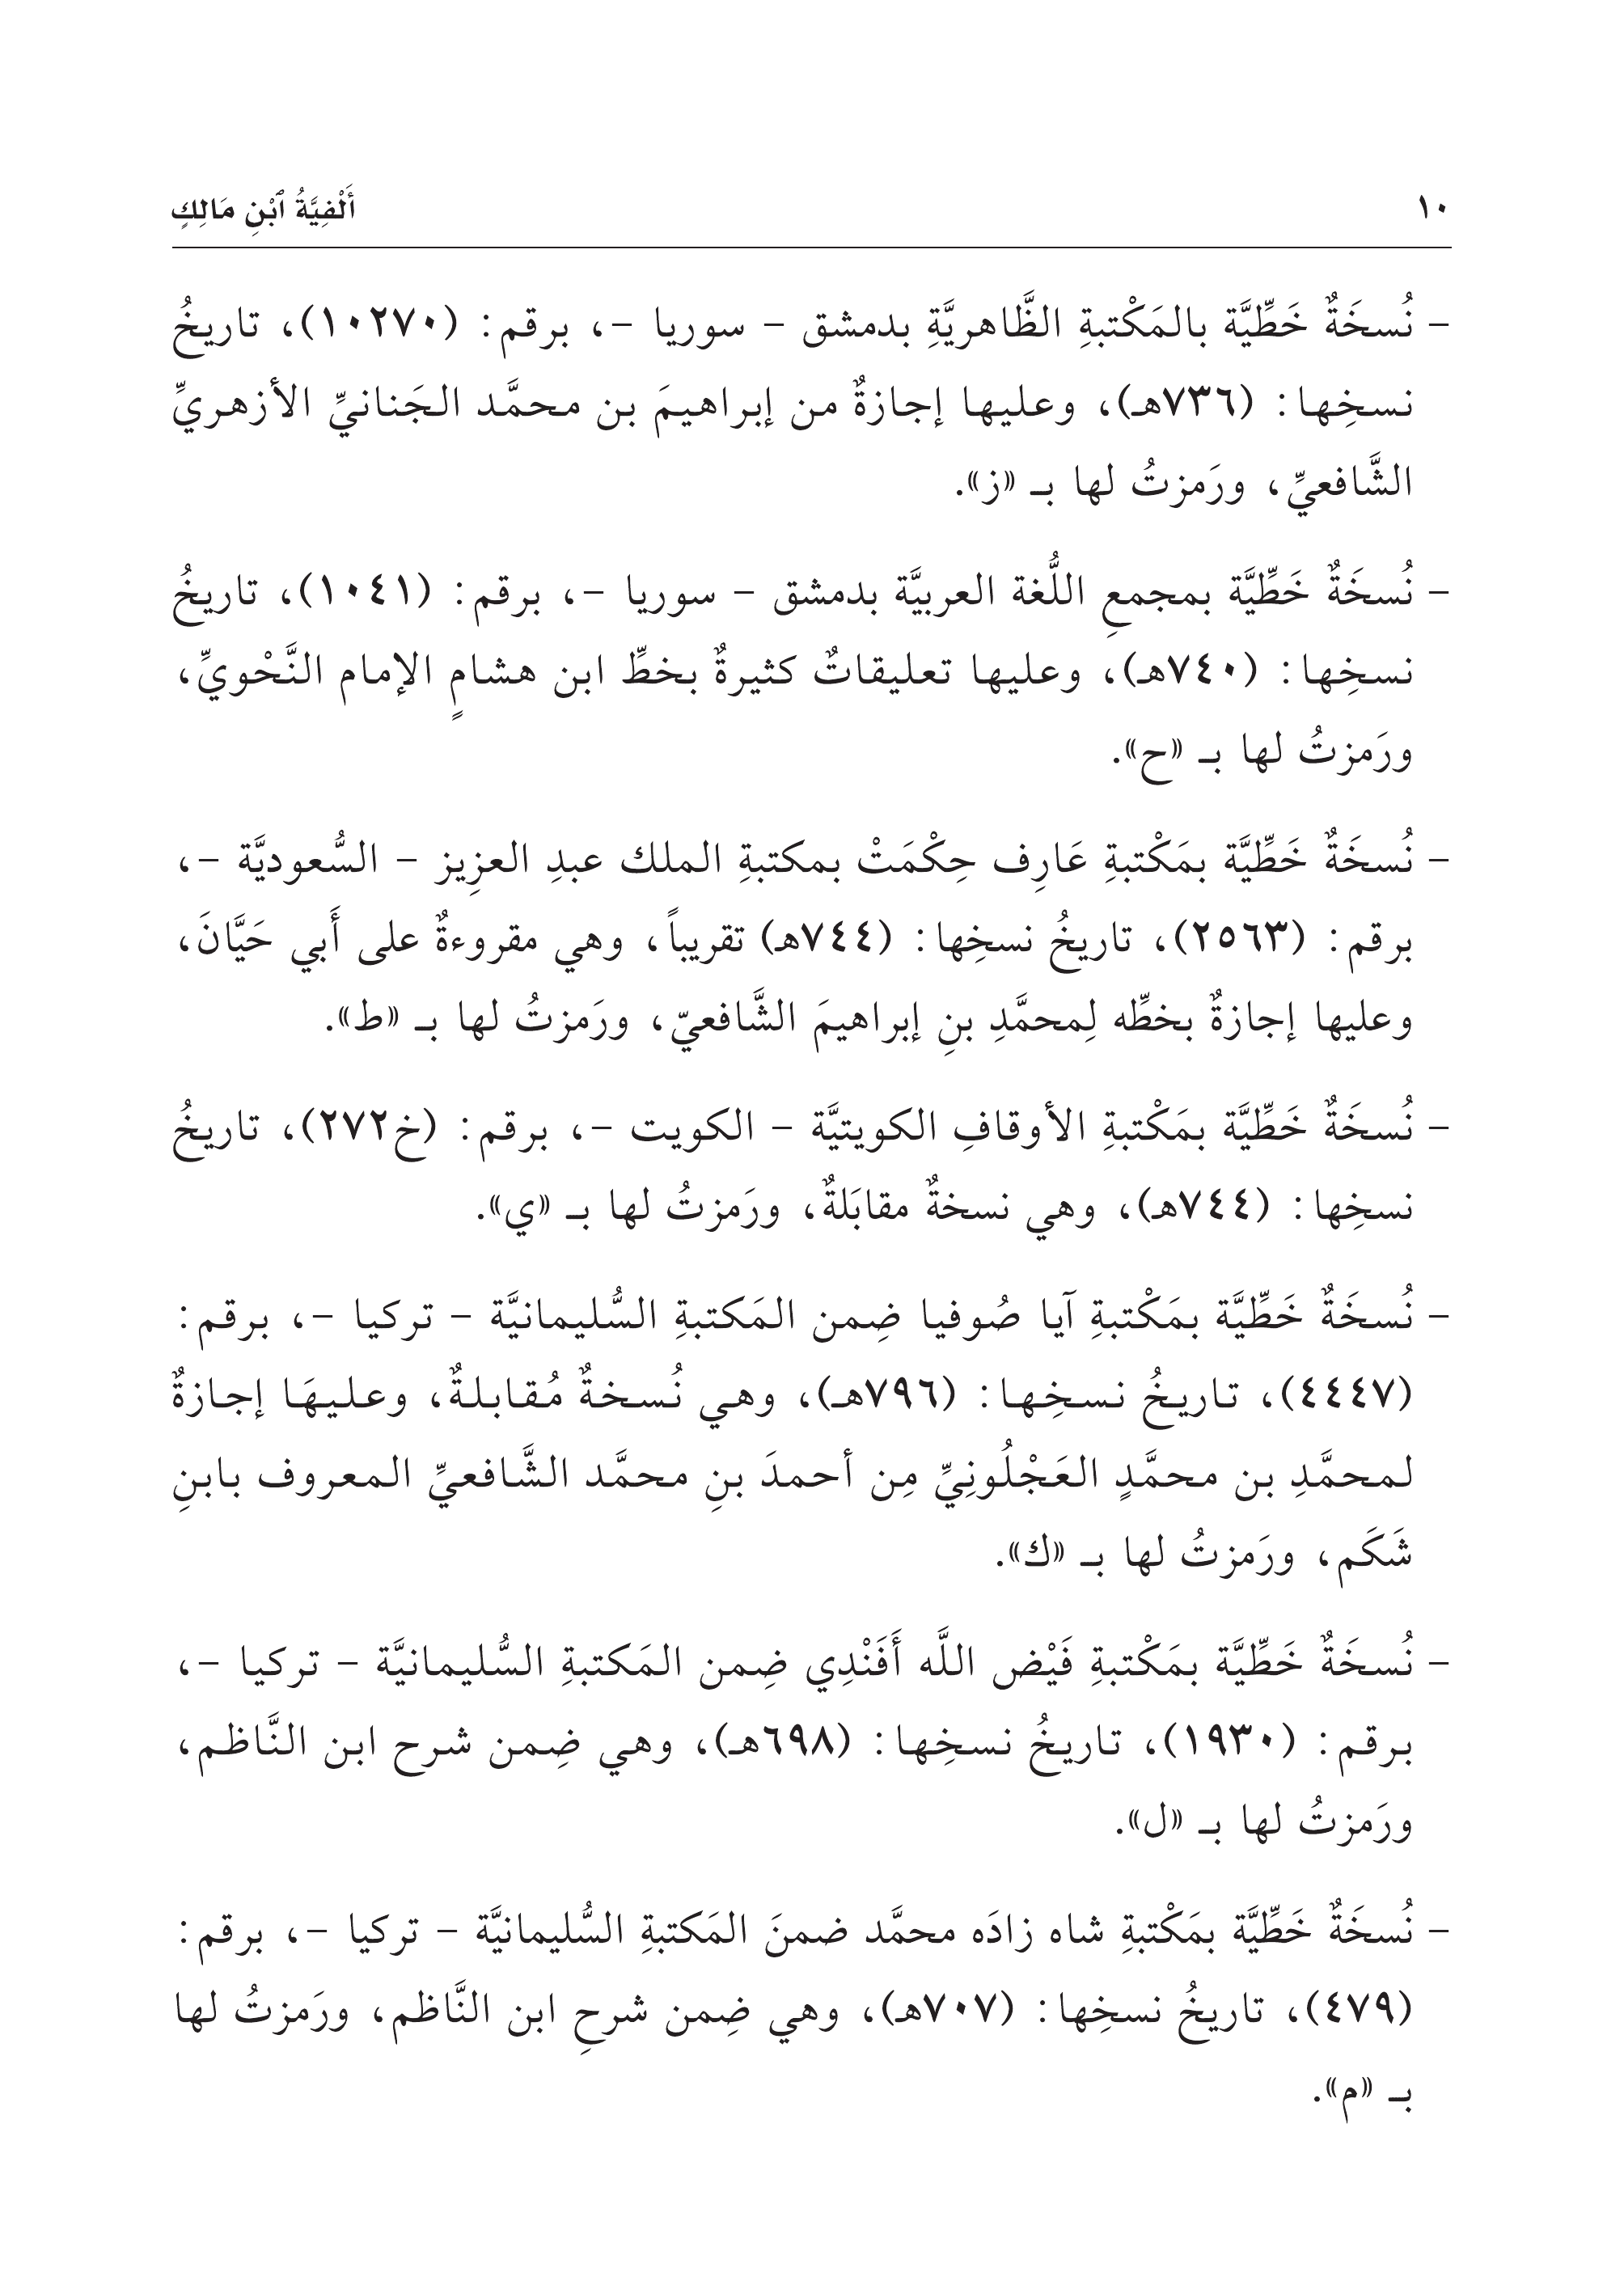 ١٠
أَلْفِيَّةُ ٱبْنِ مَالِكٍ
- نُسخَةٌ خَطِّيَّة بالمَكْتبةِ الظَّاهريَّةِ بدمشق - سوريا -، برقم: (١٠٢٧٠)، تاريخُ
نسخِها: (٧٣٦هـ)، وعليها إجازةٌ من إبراهيمَ بن محمَّد الجَنانيِّ الأزهريِّ
الشَّافعيِّ، ورَمزتُ لها بـ «ز».
- نُسخَةٌ خَطِّيَّة بمجمعِ اللُّغة العربيَّة بدمشق - سوريا -، برقم: (١٠٤١)، تاريخُ
نسخِها: (٧٤٠هـ)، وعليها تعليقاتٌ كثيرةٌ بخطِّ ابن هشامٍ الإمام النَّحْويِّ،
ورَمزتُ لها بـ «ح».
- نُسخَةٌ خَطِّيَّة بمَكْتبةِ عَارِف حِكْمَتْ بمكتبةِ الملك عبدِ العزِيز - السُّعوديَّة -،
برقم: (٢٥٦٣)، تاريخُ نسخِها: (٧٤٤هـ) تقريباً، وهي مقروءةٌ على أَبي حَيَّانَ،
وعليها إجازةٌ بخطِّه لِمحمَّدِ بنِ إبراهيمَ الشَّافعيّ، ورَمزتُ لها بـ «ط».
- نُسخَةٌ خَطِّيَّة بمَكْتبةِ الأوقافِ الكويتيَّة - الكويت -، برقم: (خ٢٧٢)، تاريخُ
نسخِها: (٧٤٤هـ)، وهي نسخةٌ مقابَلةٌ، ورَمزتُ لها بـ «ي».
- نُسخَةٌ خَطِّيَّة بمَكْتبةِ آيا صُوفيا ضِمن المَكتبةِ السُّليمانيَّة - تركيا -، برقم:
(٤٤٤٧)، تاريخُ نسخِها: (٧٩٦هـ)، وهي نُسخةٌ مُقابلةٌ، وعليهَا إجازةٌ
لمحمَّدِ بن محمَّدٍ العَجْلُونِيِّ مِن أحمدَ بنِ محمَّد الشَّافعيِّ المعروف بابنِ
شَكَم، ورَمزتُ لها بـ «ك».
- نُسخَةٌ خَطِّيَّة بمَكْتبةِ فَيْض اللَّه أَفَنْدِي ضِمن المَكتبةِ السُّليمانيَّة - تركيا -،
برقم: (١٩٣٠)، تاريخُ نسخِها: (٦٩٨هـ)، وهي ضِمن شرح ابن النَّاظم،
ورَمزتُ لها بـ «ل».
- نُسخَةٌ خَطِّيَّة بمَكْتبةِ شاه زادَه محمَّد ضمنَ المَكتبةِ السُّليمانيَّة - تركيا -، برقم:
(٤٧٩)، تاريخُ نسخِها: (٧٠٧هـ)، وهي ضِمن شرحِ ابن النَّاظم، ورَمزتُ لها
بـ «م».